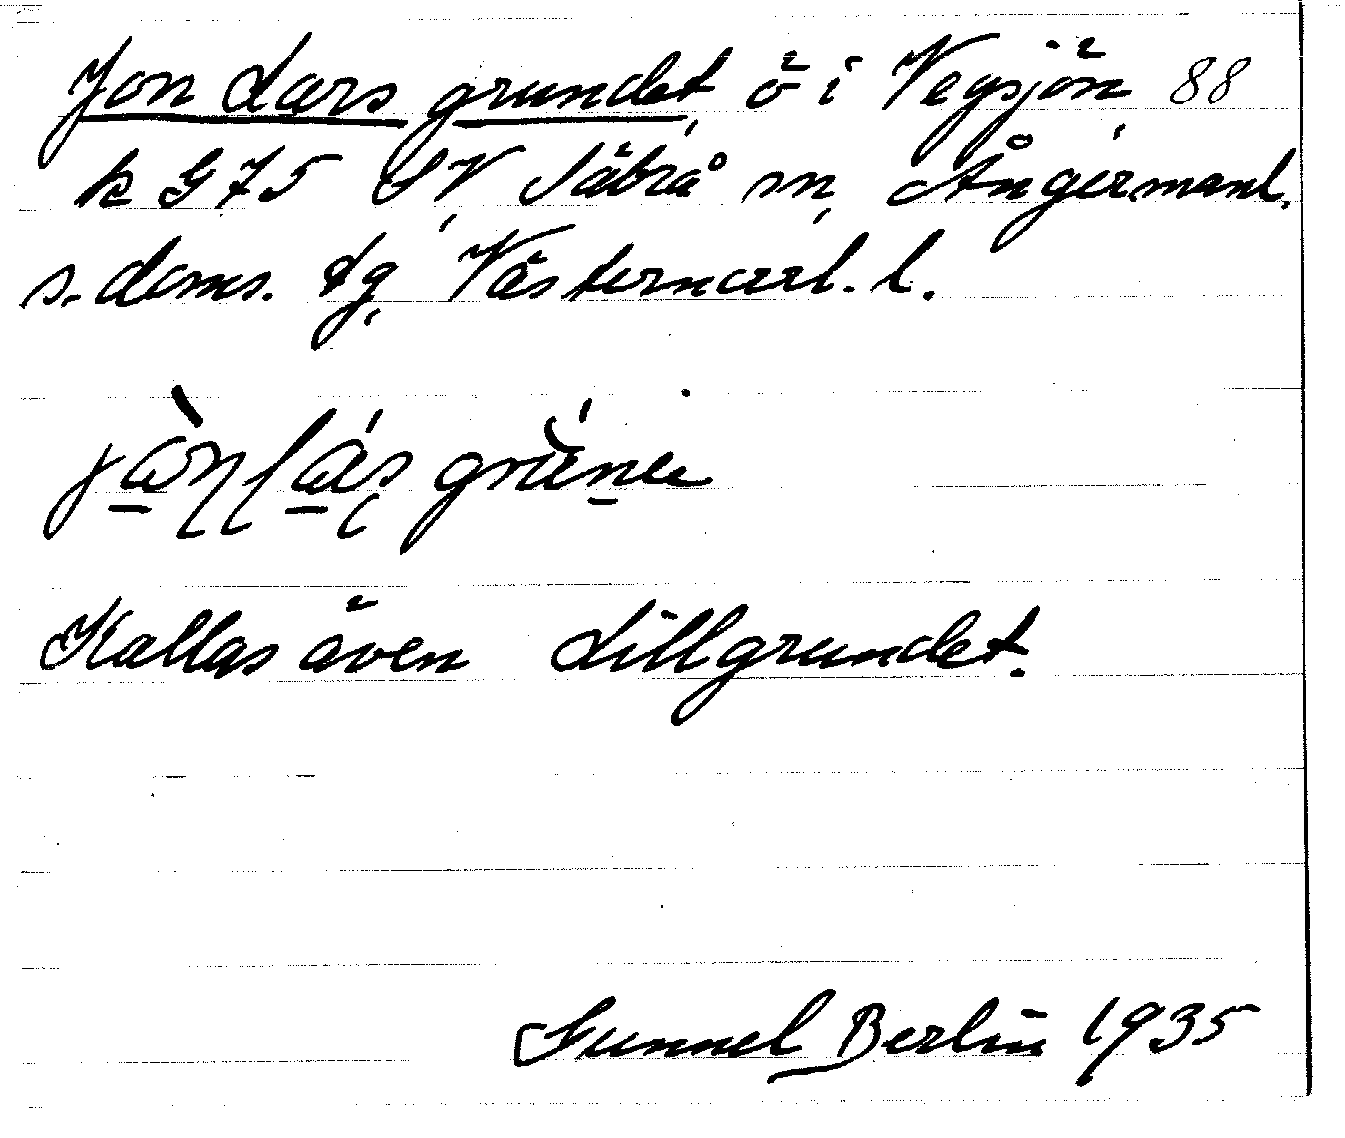 Jon Lars grundet, ö i Vegsjön 88
k G 75 SV, Säbrå sn, Ångermanl.
s. doms. tg, Västernorrl. l.
Kallas även Lillgrundet.
Gunnel Berlin 1935